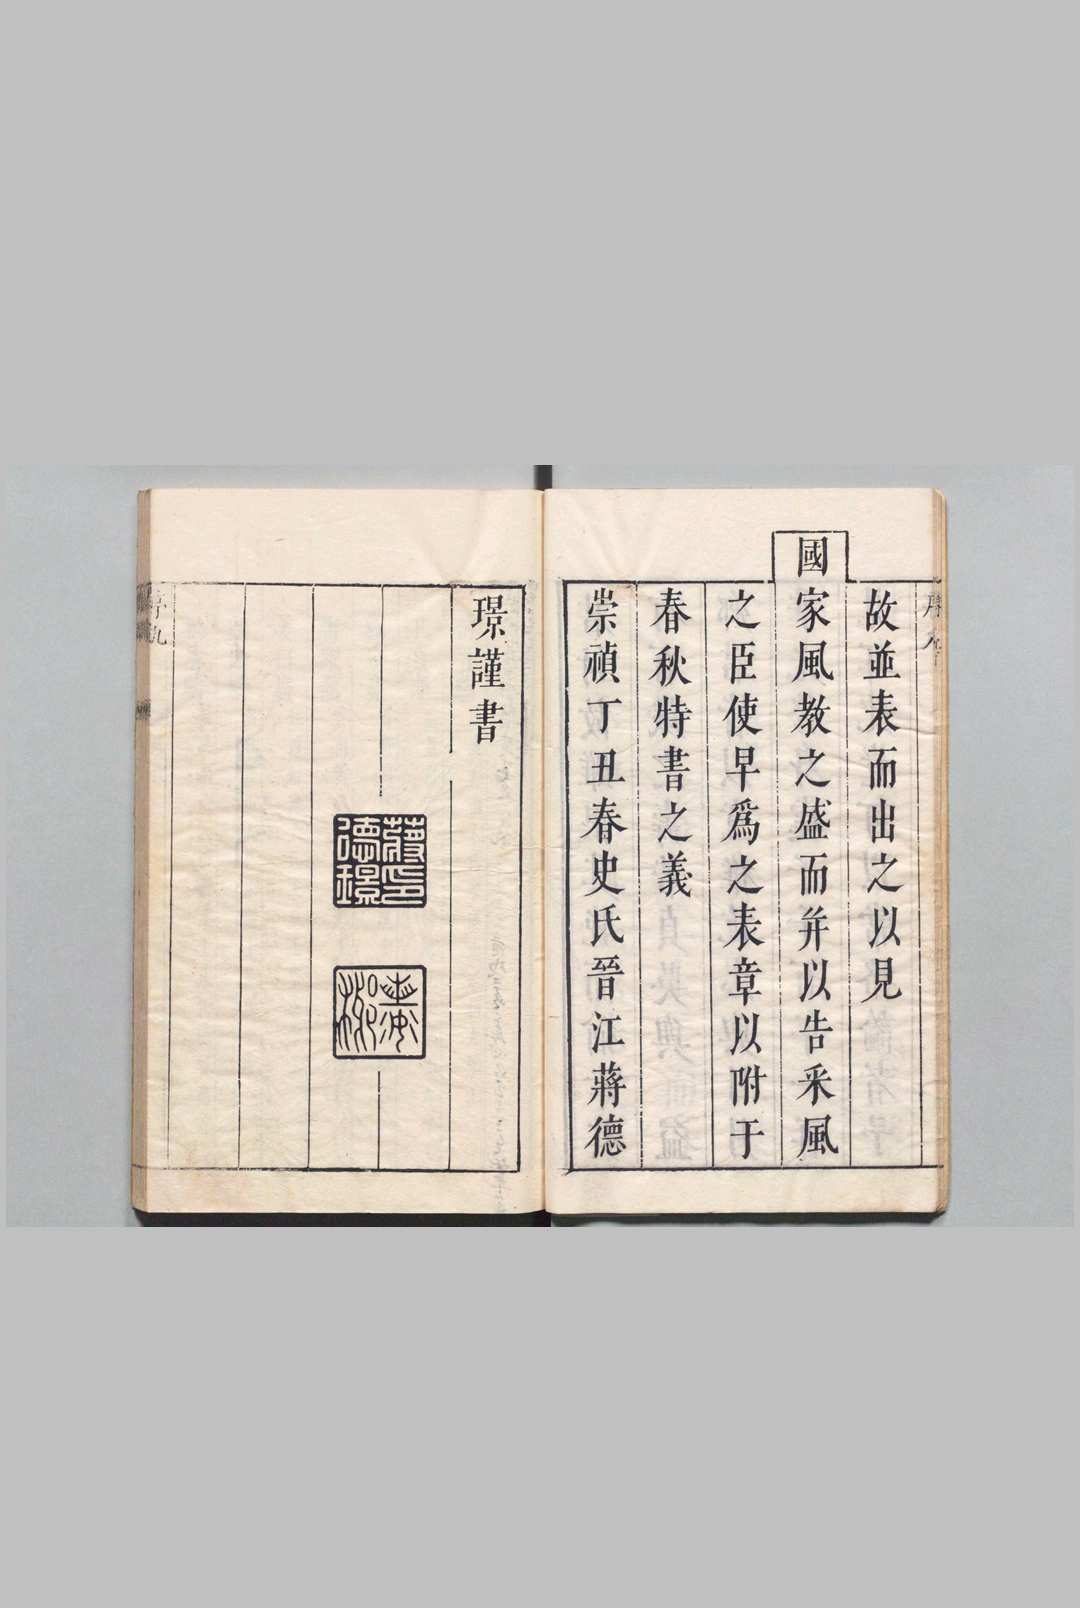 故並表而出之以見
國家風教之盛而并以告采風
之臣使早爲之表章以附于
春秋特書之義
崇禎丁丑春史氏晉江蔣德
璟謹書
蔣印
德璟